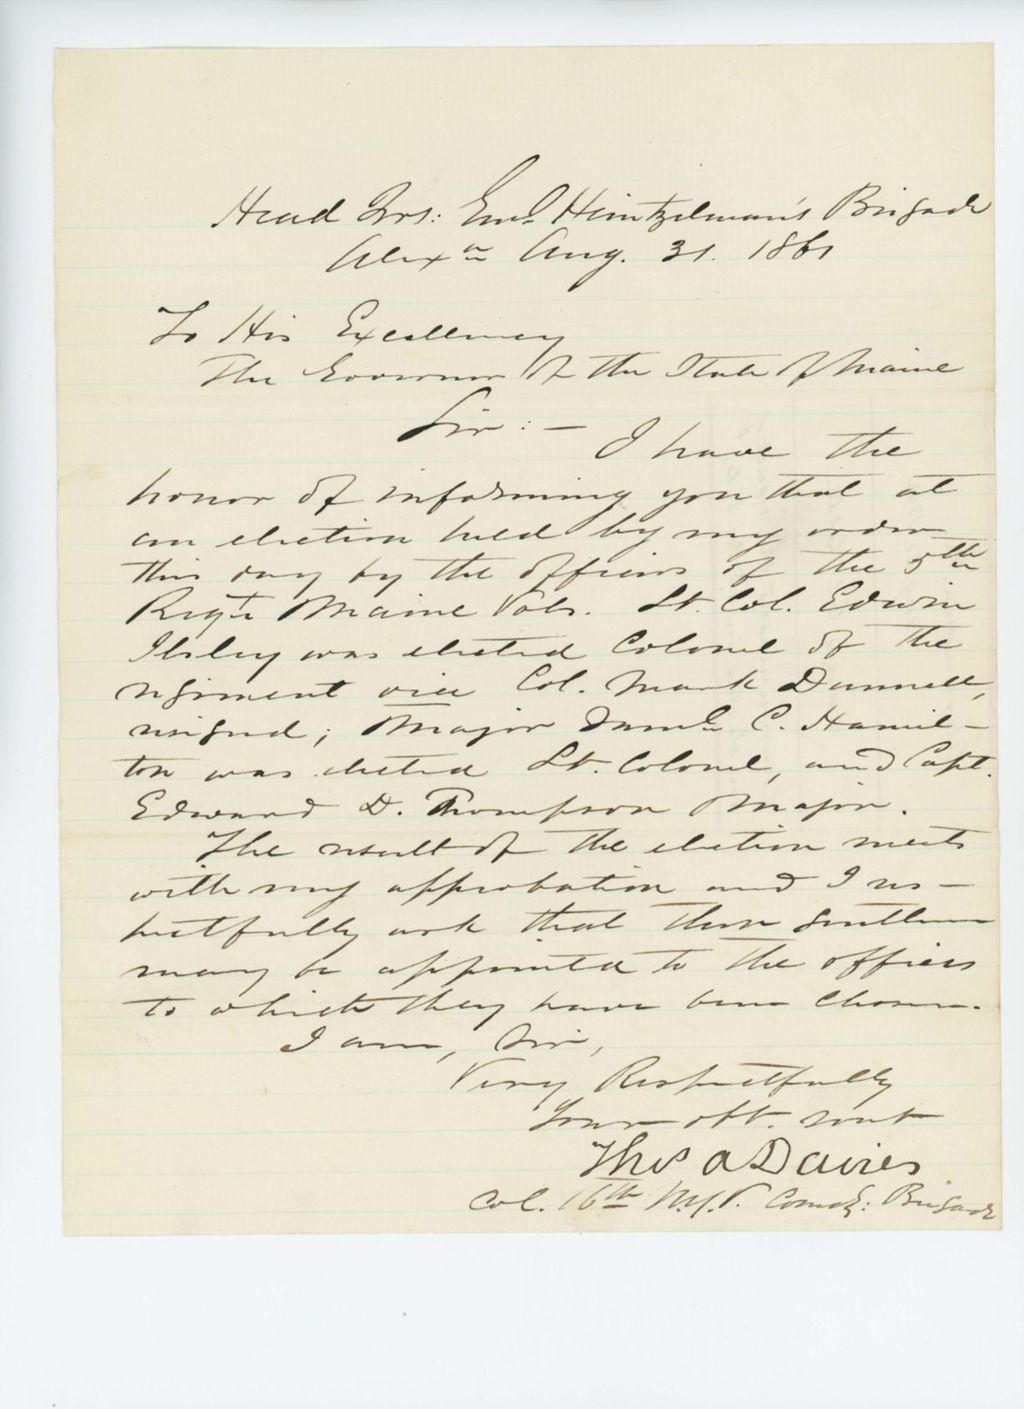 Head Qrs: Genl Heintzelman's Brigade
Alexa Aug. 31. 1861
To His Excellency
The Governor of the State of Maine
Sir: — I have the
honor of informing you that at
an election held by my order
this day by the officers of the 5th
Regt Maine Vols. Lt. Col. Edwin
Ilsley was elected Colonel of the
regiment vice Col. Mark Dunnell,
resigned; Major Saml C. Hamil-
ton was elected Lt. Colonel, and Capt.
Edward D. Thompson Major.
The result of the election meets
with my approbation and I res-
pectfully ask that these gentlemen
may be appointed to the offices
to which they have been chosen.
I am, Sir,
Very Respectfully
Your obt. servt
Thos A Davies
Col. 16th N.Y.V. Comdg: Brigade